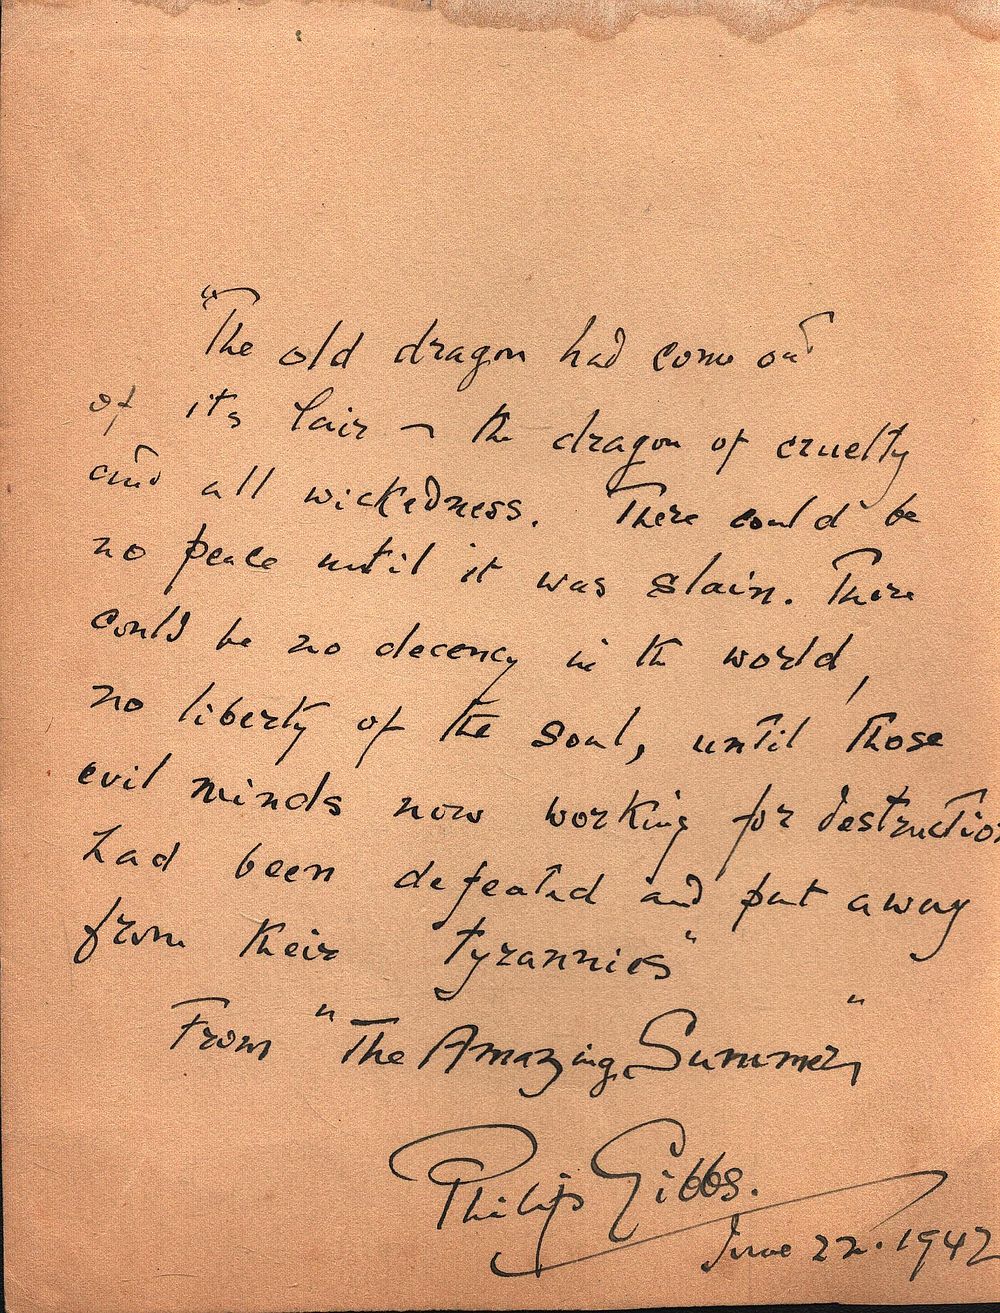 "The old dragon had come out
of its lair – the dragon of cruelty
and all wickedness. There could be
no peace until it was slain. There
could be no decency in the world,
no liberty of the soul, until those
evil minds now working for destruction
had been defeated and put away
from their tyrannies"
From "The Amazing Summer"
Philip Gibbs.
June 22. 1942